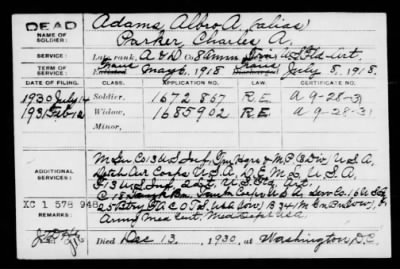 DEAD
NAME OF SOLDIER:
Adams, Albro A. (alias)
Parker, Charles A.
SERVICE:
Late rank, A & D Co Ammn U S Fld Art.
TERM OF SERVICE:
Enlisted May 6, 1918 Discharged July 8, 1918.
DATE OF FILING. CLASS. APPLICATION NO. LAW. CERTIFICATE NO.
1930 July 14 Soldier, 1672867 R.E. A 9-28-31
1931 Feb 12 Widow, 1685902 R.E. A 9-28-31
Minor,
ADDITIONAL SERVICES:
M Gun Co 13 U S Inf, & M P B Div, U S A,
Air Corps U S A, D. E. M. L. U S A,
F 13 U S Inf, Art.
Tank Corps U S A, Serv Co 16 U S
25 Btry F A C O T S. USA
Army Med Cent. Med Dept USA.
XC 1 578 948
REMARKS:
Died Dec 13, 1930, at Washington, D.C.